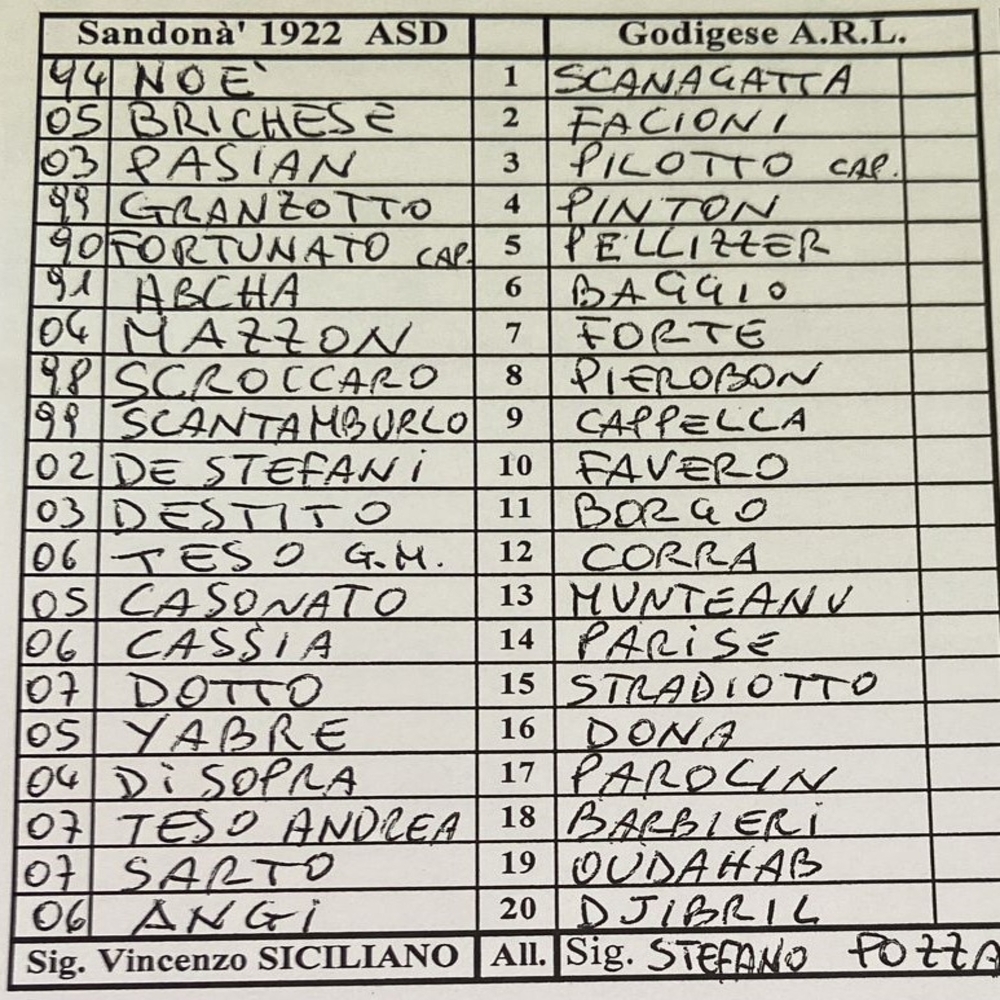 Sandonà' 1922 ASD Godigese A.R.L.
94 NOE' 1 SCANAGATTA
05 BRICHESE 2 FACIONI
03 PASIAN 3 PILOTTO CAP.
99 GRANZOTTO 4 PINTON
90 FORTUNATO CAP. 5 PELLIZZER
91 ABCHA 6 BAGGIO
04 MAZZON 7 FORTE
98 SCROCCARO 8 PIEROBON
99 SCANTAMBURLO 9 CAPPELLA
02 DE STEFANI 10 FAVERO
03 DESTITO 11 BORGO
06 TESO G.M. 12 CORRA
05 CASONATO 13 MUNTEANU
06 CASSIA 14 PARISE
07 DOTTO 15 STRADIOTTO
05 YABRE 16 DONA
04 Di SOPRA 17 PAROLIN
07 TESO ANDREA 18 BARBIERI
07 SARTO 19 OUDAHAB
06 ANGI 20 DJIBRIL
Sig. Vincenzo SICILIANO All. Sig. STEFANO POZZA